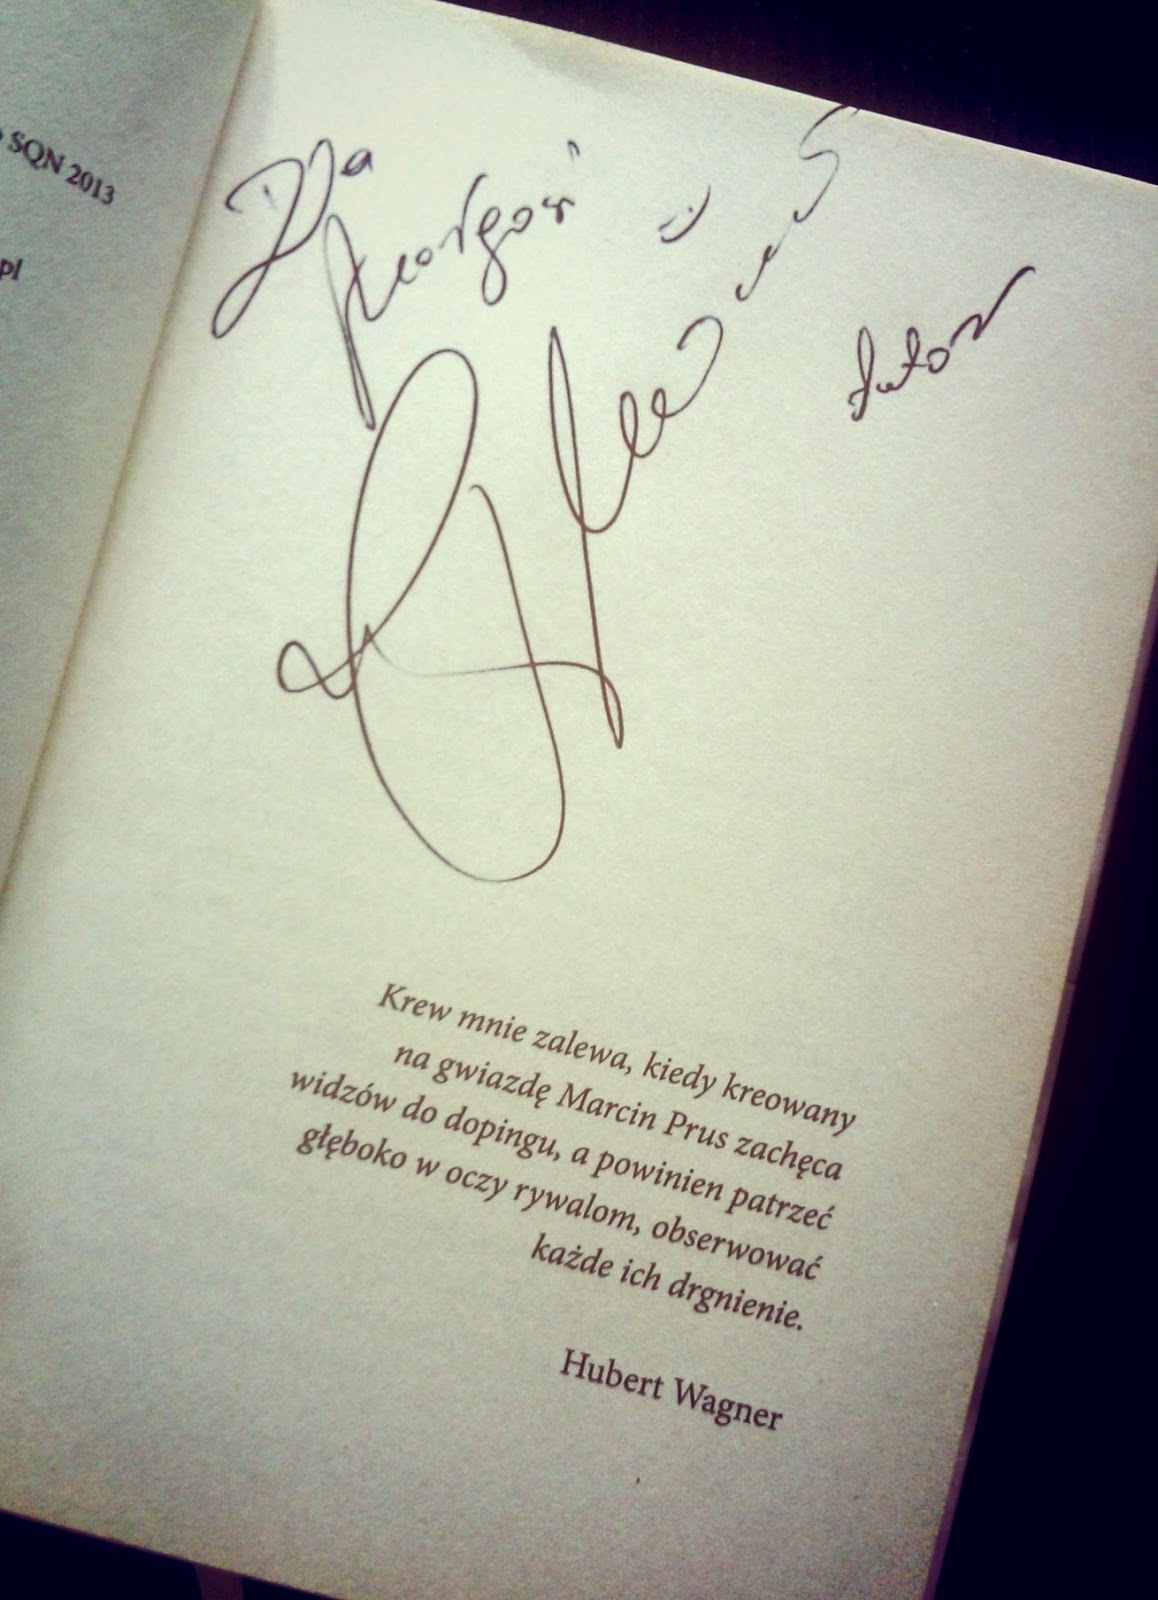 SQN 2013
pl
Dla
:)
Autor
Krew mnie zalewa, kiedy kreowany
na gwiazdę Marcin Prus zachęca
widzów do dopingu, a powinien patrzeć
głęboko w oczy rywalom, obserwować
każde ich drgnienie.
Hubert Wagner